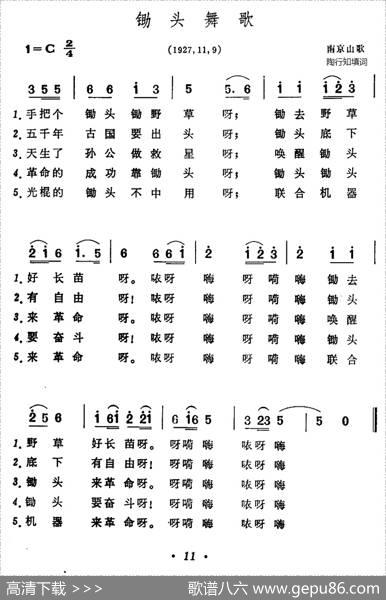 锄头舞歌
1=C 2/4
(1927,11,9)
南京山歌
陶行知填词
3 5 5 | 6 6 | i 3 | 5 | 5. 6 | i i | i 2 3 |
1.手把个 锄头 锄野 草 呀; 锄去 野草
2.五千年 古国 要出 头 呀; 锄头 底下
3.天生了 孙公 做救 星 呀; 唤醒 锄头
4.革命的 成功 靠锄 头 呀; 锄头 锄头
5.光棍的 锄头 不中 用 呀; 联合 机器
2 i 6 | i. 5 | 6 | 6 6 i | 2 | i 2 3 | 2 | i i |
1.好长苗 呀。 咳呀 嗨 呀嗬嗨 锄去
2.有自由 呀! 咳呀 嗨 呀嗬嗨 锄头
3.来革命 呀。 咳呀 嗨 呀嗬嗨 唤醒
4.要奋斗 呀! 咳呀 嗨 呀嗬嗨 锄头
5.来革命 呀。 咳呀 嗨 呀嗬嗨 联合
2 5 6 | i 6i 2 2i | 6 i6 5 | 3 23 5 | 5 0 ‖
1.野草 好长苗呀。 呀嗬嗨 咳呀嗨
2.底下 有自由呀! 呀嗬嗨 咳呀嗨
3.锄头 来革命呀! 呀嗬嗨 咳呀嗨
4.锄头 要奋斗呀! 呀嗬嗨 咳呀嗨
5.机器 来革命呀。 呀嗬嗨 咳呀嗨
· 11 ·
高清下载 >>>
歌谱八六 www.gepu86.com